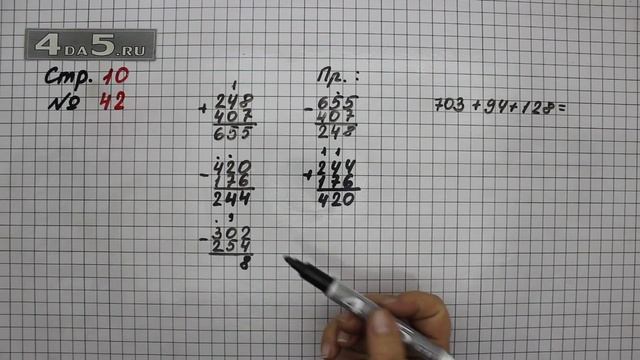 4DA5.RU
Стр. 10
№ 42
1
+ 248
407
655
- 420
176
244
9
- 302
254
8
Пр.:
- 655
407
248
1 1
+ 244
176
420
703 + 94 + 128 =